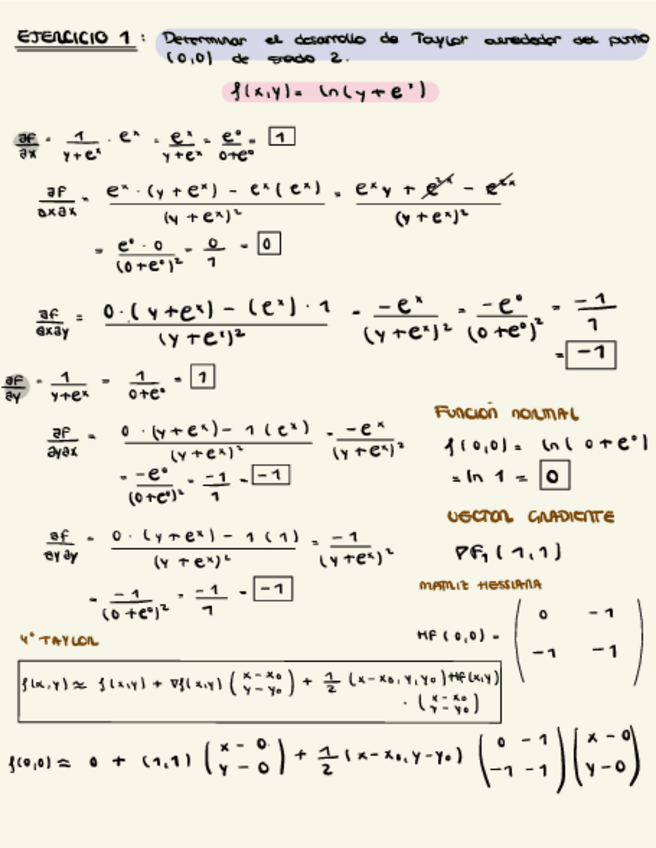 EJERCICIO 1: Determinar el desarrollo de Taylor alrededor del punto
(0,0) de grado 2.
f(x,y) = ln(y + e^x)
∂f/∂x = 1/(y+e^x) · e^x = e^x/(y+e^x) = e^0/(0+e^0) = 1
∂f/∂x∂x = (e^x · (y + e^x) - e^x (e^x))/(y + e^x)^2 = (e^x y + e^2x - e^2x)/(y + e^x)^2
= (e^0 · 0)/(0+e^0)^2 = 0/1 = 0
∂f/∂x∂y = (0 · (y+e^x) - (e^x) · 1)/(y + e^x)^2 = -e^x/(y+e^x)^2 = -e^0/(0+e^0)^2 = -1/1
= -1
∂f/∂y = 1/(y+e^x) = 1/(0+e^0) = 1
∂f/∂y∂x = (0 · (y+e^x) - 1(e^x))/(y+e^x)^2 = -e^x/(y+e^x)^2
= -e^0/(0+e^0)^2 = -1/1 = -1
FUNCIÓN NORMAL
f(0,0) = ln(0+e^0)
= ln 1 = 0
∂f/∂y∂y = (0 · (y+e^x) - 1(1))/(y+e^x)^2 = -1/(y+e^x)^2
= -1/(0+e^0)^2 = -1/1 = -1
VECTOR GRADIENTE
∇F, (1,1)
MATRIZ HESSIANA
HF(0,0) = ( 0 -1
-1 -1 )
4º TAYLOR
f(x,y) ≈ f(x,y) + ∇f(x,y) (x-x0 y-y0) + 1/2 (x-x0, y,y0) HF(x,y)
· (x-x0 y-y0)
f(0,0) ≈ 0 + (1,1) (x-0 y-0) + 1/2 (x-x0, y-y0) (0 -1 -1 -1) (x-0 y-0)